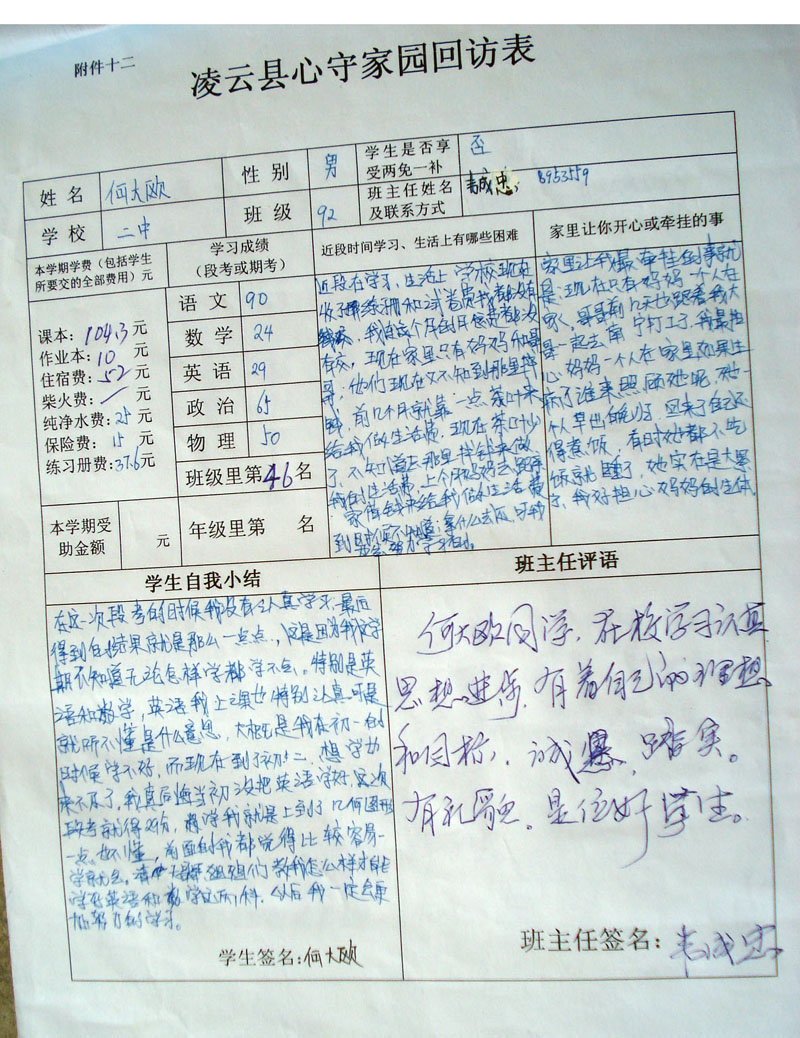 附件十二
凌云县心守家园回访表
姓名 何大欧 性别 男 学生是否享受两免一补 否
学校 二中 班级 92 班主任姓名及联系方式 韦成忠: 8953559
本学期学费(包括学生所要交的全部费用)元
学习成绩
(段考或期考)
近段时间学习、生活上有哪些困难
家里让你开心或牵挂的事
课本: 104.3元
作业本: 10元
住宿费: 52元
柴火费: 一元
纯净水费: 25元
保险费: 15元
练习册费: 37.6元
语文 90
数学 24
英语 29
政治 65
物理 50
班级里第46名
年级里第 名
本学期受
助金额 元
近段在学习、生活上,学校现在
收了练习册和试卷费我都没有
钱交,我连这个月的月总费都没
有交,现在家里只有妈妈和哥
哥,他们现在又不知到那里
钱,前几个月就靠一点茶叶来
给我做生活费,现在茶叶少
了,不知道去那里找钱来做
我的生活费,上个月妈妈去
家借钱来给我做生活费
家里让我最牵挂的事就
是:现在只有妈妈一个人在
家,哥哥前几天也跟着我大
哥一起去南宁打工了,我最担
心妈妈一个人在家里如果生
病了谁来照顾她呢,她一
个人早出晚归,回来了自己还
得煮饭,有时她都不吃
饭就睡了,她实在是太累
了,我好担心妈妈的身体。
学生自我小结
在这一次段考的时候我没有认真学习,最后
得到的结果就是那么一点点,这是因为我这学
期不知道无论怎样学都学不会。特别是英
语和数学,英语我上课特别认真可是
就听不懂是什么意思,大概是我在初一的
时候学不好,而现在到了初二,想学也
来不及了,我真后悔当初没把英语学好,这次
段考就得29分,数学我就是上到了几何图形
一点也不懂,前面的我都觉得比较容易一
学就会。请哥哥姐姐们教我怎么样才能
学好英语和数学这两科,以后我一定会更
加努力的学习。
学生签名:何大欧
班主任评语
何大欧同学,在校学习认真
思想进步,有着自己的理想
和目标,诚恳,踏实。
有礼貌。是位好学生。
班主任签名:韦成忠